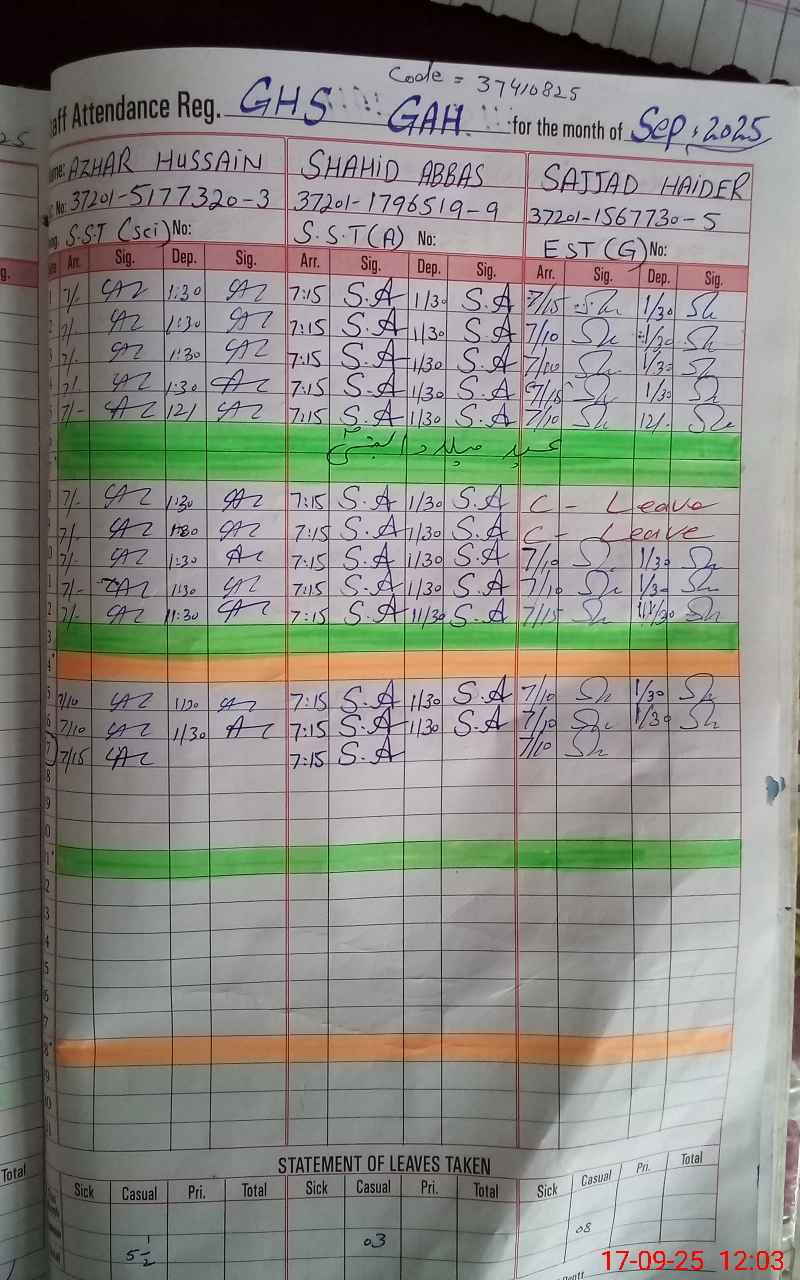 Code = 37410825
aff Attendance Reg. GHS GAH for the month of Sep, 2025
ame: AZHAR HUSSAIN SHAHID ABBAS SAJJAD HAIDER
No: 37201-5177320-3 37201-1796519-9 37201-1567730-5
S.S.T (Sci) No: S.S.T (A) No: EST (G) No:
Arr. Sig. Dep. Sig. Arr. Sig. Dep. Sig. Arr. Sig. Dep. Sig.
1 7/- 1:30 7:15 S.A 1/30 S.A 7/15 1/30
2 7/- 1:30 7:15 S.A 1/30 S.A 7/10 1/30
3 7/- 1:30 7:15 S.A 1/30 S.A 7/10 1/30
4 7/- 1:30 7:15 S.A 1/30 S.A 7/15 1/30
5 7/- 12/ 7:15 S.A 1/30 S.A 7/10 12/-
عید میلاد النبیؐ
8 7/- 1:30 7:15 S.A 1/30 S.A C - Leave
9 7/- 1:30 7:15 S.A 1/30 S.A C - Leave
0 7/- 1:30 7:15 S.A 1/30 S.A 7/10 1/30
1 7/- 1:30 7:15 S.A 1/30 S.A 7/10 1/30
2 7/- 11:30 7:15 S.A 11/30 S.A 7/15
3
4
5 7/10 1/30 7:15 S.A 1/30 S.A 7/10 1/30
6 7/10 1/30 7:15 S.A 1/30 S.A 7/10 1/30
7 7/15 7:15 S.A 7/10
8
9
0
1
2
3
4
5
6
7
8
9
0
1
STATEMENT OF LEAVES TAKEN
Total Sick Casual Pri. Total Sick Casual Pri. Total Sick Casual Pri. Total
5 1/2 03 08
17-09-25 12:03